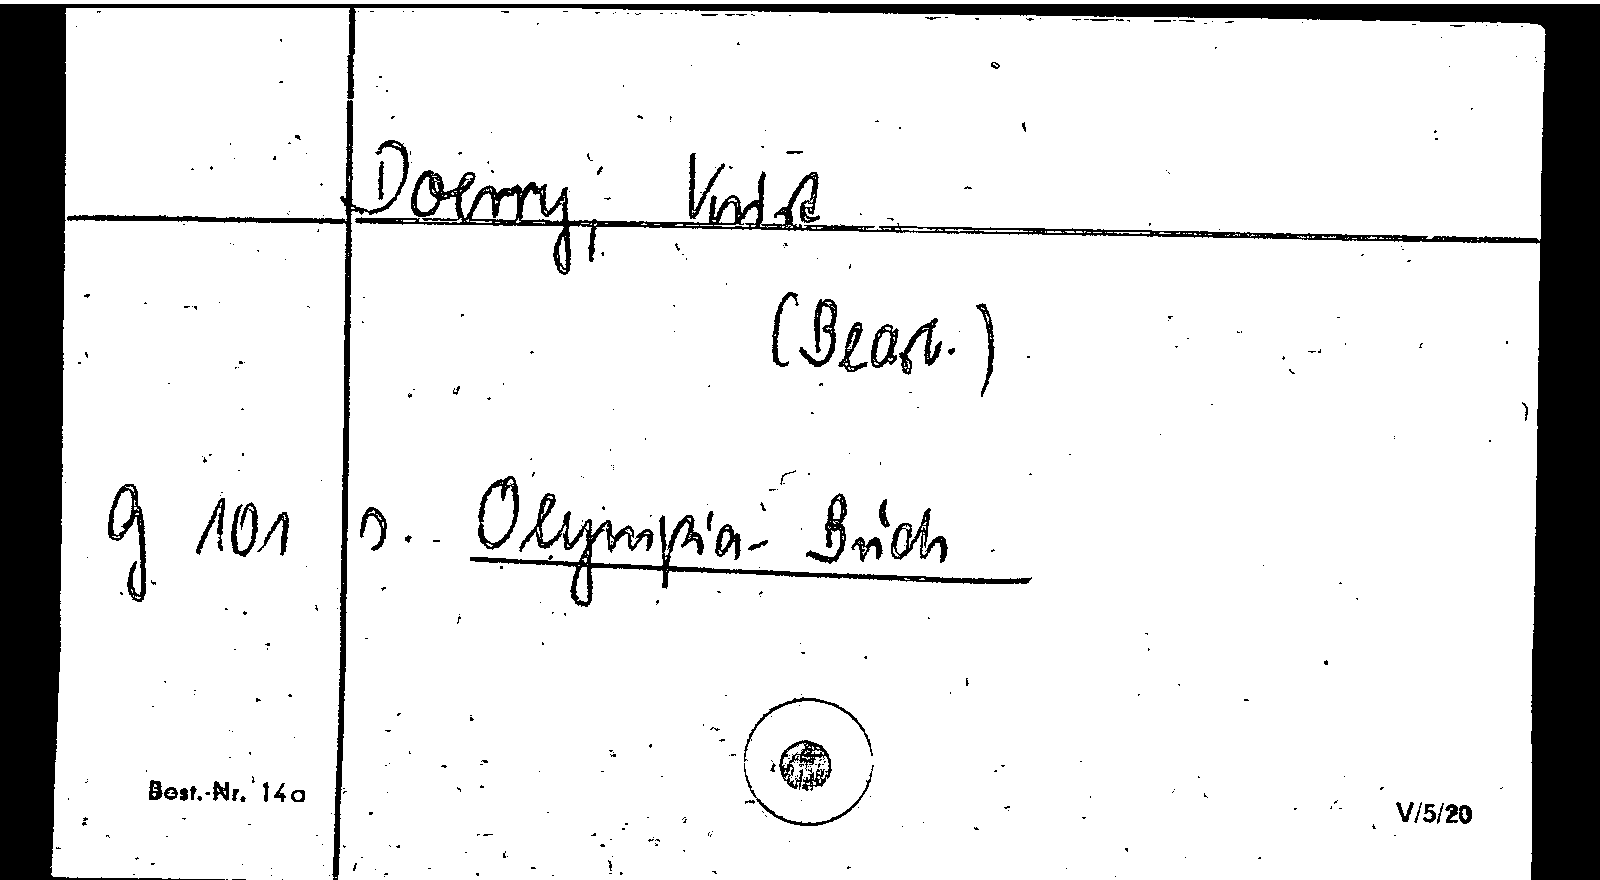 Doerry, Kurt
(Bearb.)
g 101 s. Olympia-Buch
Best.-Nr. 14a
V/5/20